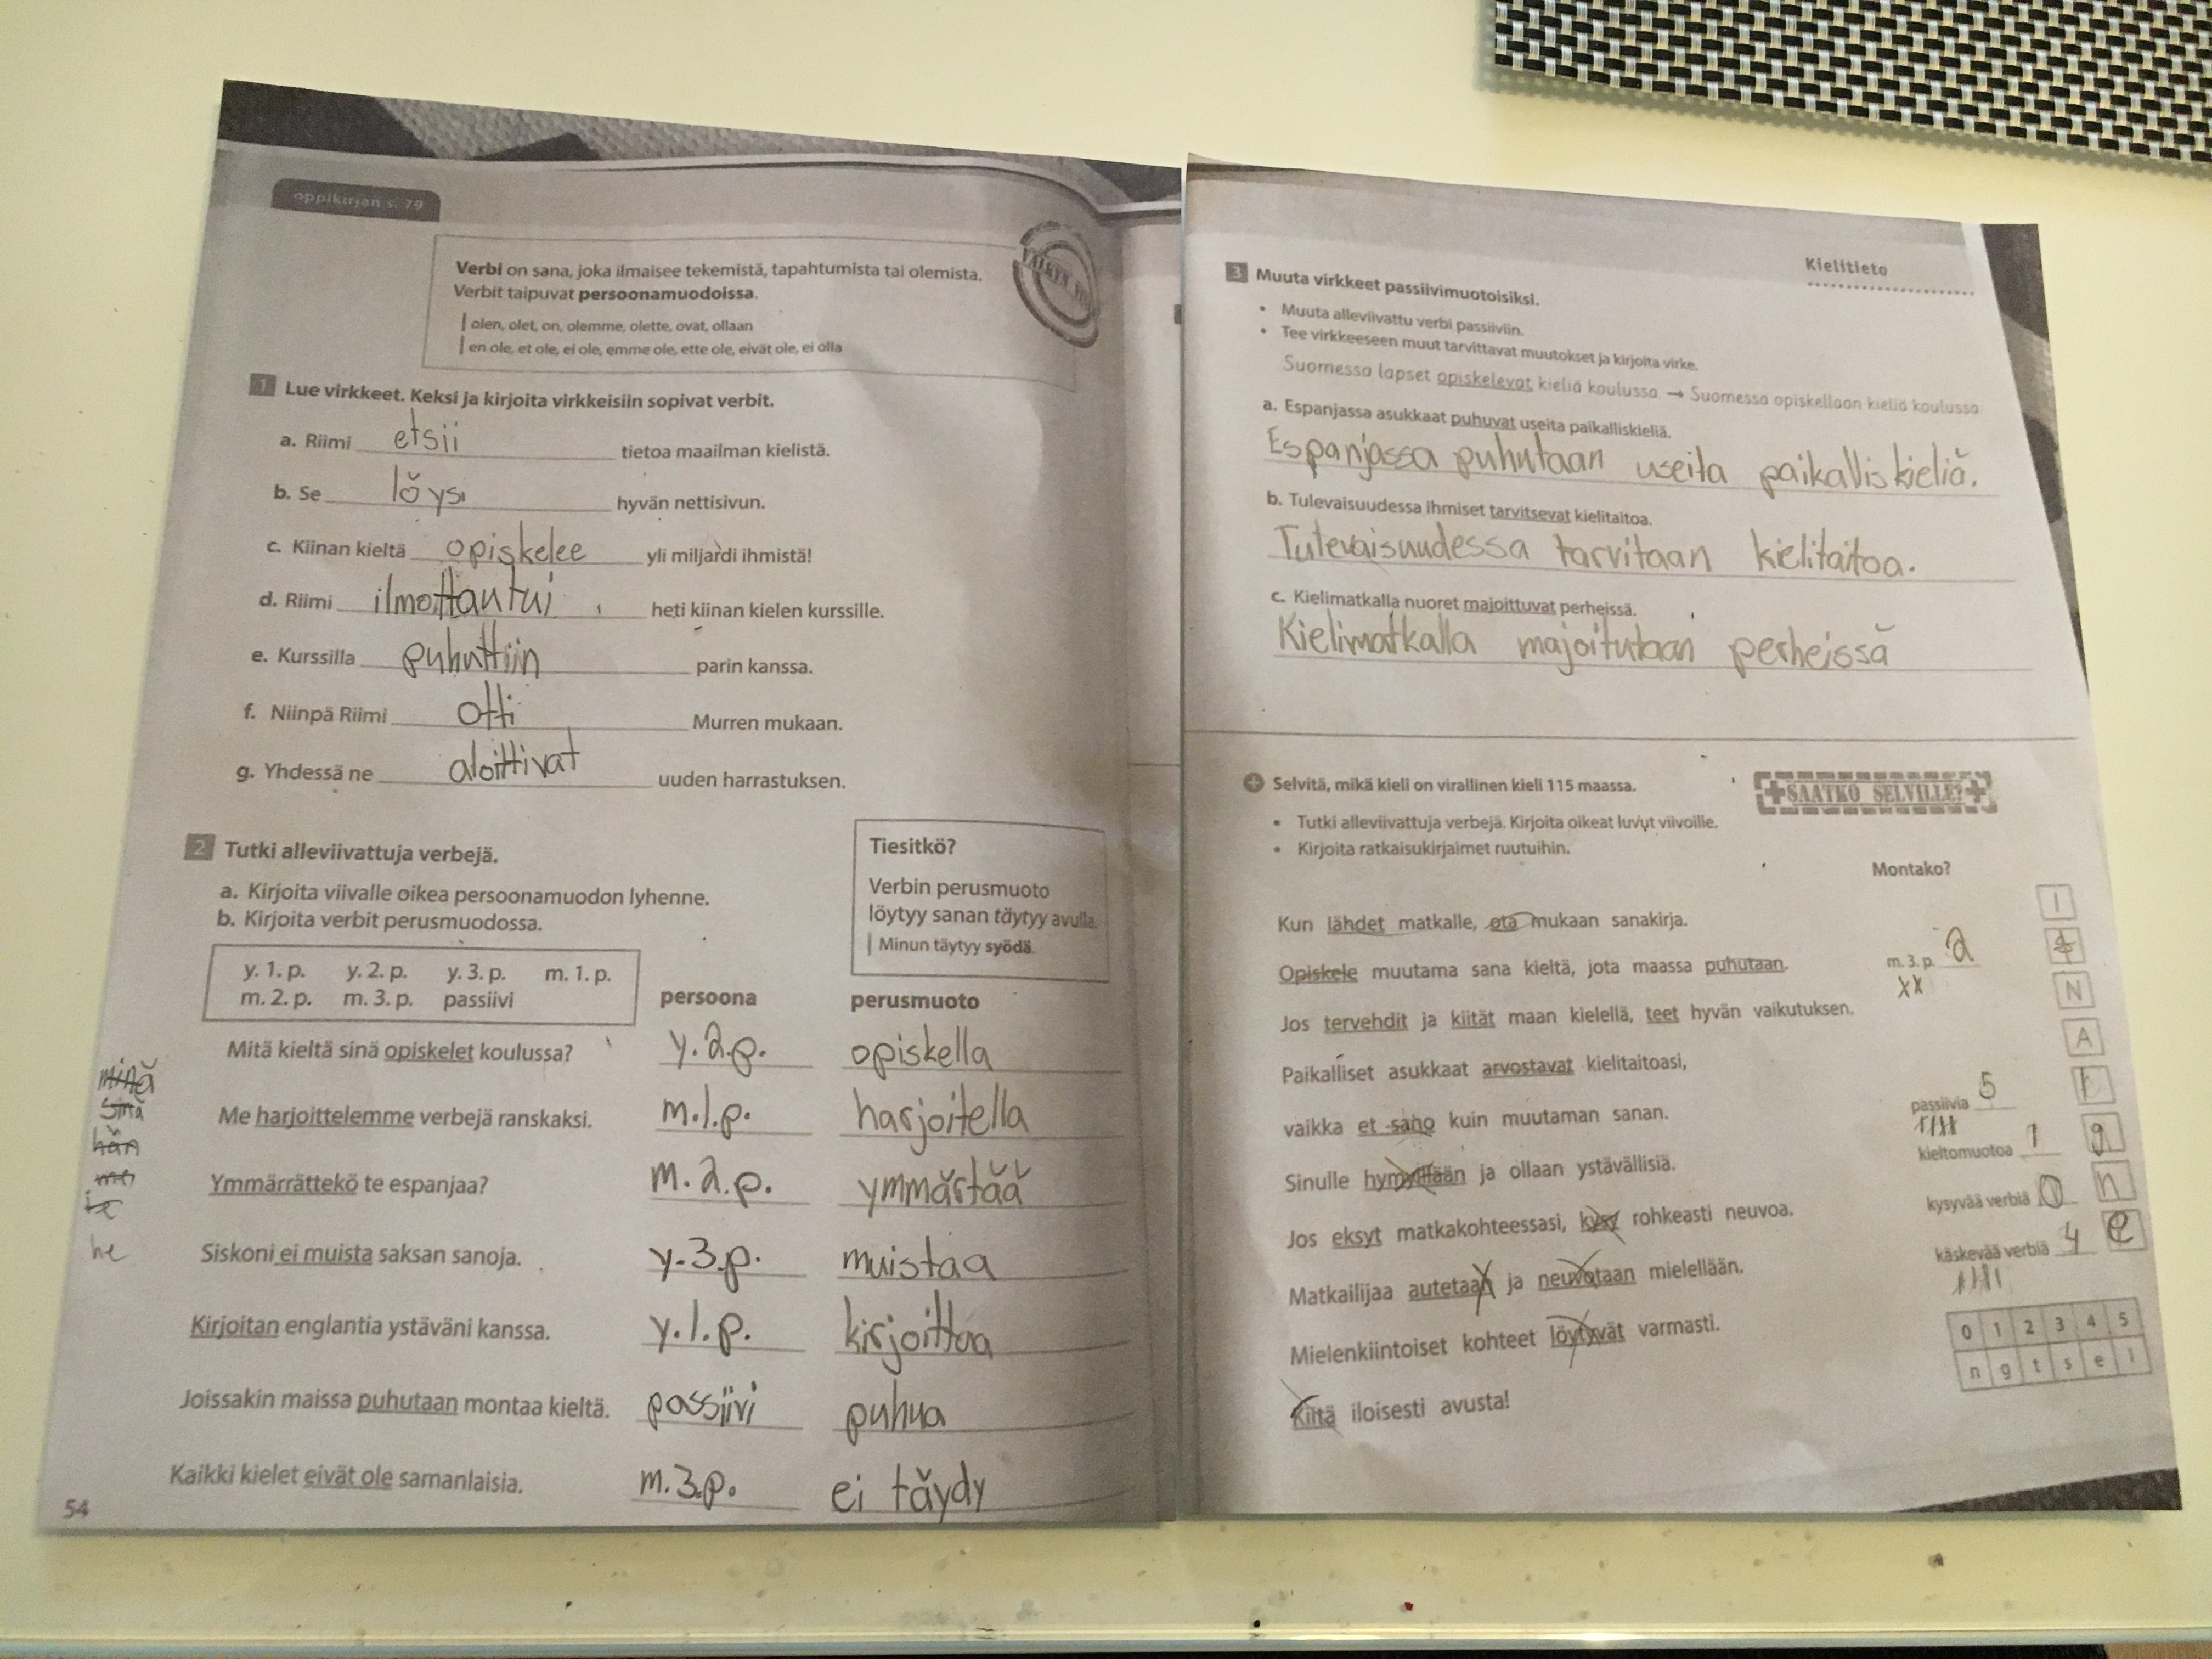 oppikirjan s. 79
Verbi on sana, joka ilmaisee tekemistä, tapahtumista tai olemista.
Verbit taipuvat persoonamuodoissa.
olen, olet, on, olemme, olette, ovat, ollaan
en ole, et ole, ei ole, emme ole, ette ole, eivät ole, ei olla
1 Lue virkkeet. Keksi ja kirjoita virkkeisiin sopivat verbit.
a. Riimi etsii tietoa maailman kielistä.
b. Se löysi hyvän nettisivun.
c. Kiinan kieltä opiskelee yli miljardi ihmistä!
d. Riimi ilmottautui heti kiinan kielen kurssille.
e. Kurssilla puhuttiin parin kanssa.
f. Niinpä Riimi otti Murren mukaan.
g. Yhdessä ne aloittivat uuden harrastuksen.
2 Tutki alleviivattuja verbejä.
a. Kirjoita viivalle oikea persoonamuodon lyhenne.
b. Kirjoita verbit perusmuodossa.
Tiesitkö?
Verbin perusmuoto
löytyy sanan täytyy avulla.
Minun täytyy syödä.
y. 1. p. y. 2. p. y. 3. p. m. 1. p.
m. 2. p. m. 3. p. passiivi
persoona perusmuoto
Mitä kieltä sinä opiskelet koulussa? y.2.p. opiskella
Me harjoittelemme verbejä ranskaksi. m.1.p. harjoitella
Ymmärrättekö te espanjaa? m.2.p. ymmärtää
Siskoni ei muista saksan sanoja. y.3.p. muistaa
Kirjoitan englantia ystäväni kanssa. y.1.p. kirjoittaa
Joissakin maissa puhutaan montaa kieltä. passiivi puhua
Kaikki kielet eivät ole samanlaisia. m.3.p. ei täydy
minä
sinä
hän
me
te
he
54
Kielitieto
3 Muuta virkkeet passiivimuotoisiksi.
• Muuta alleviivattu verbi passiiviin.
• Tee virkkeeseen muut tarvittavat muutokset ja kirjoita virke.
Suomessa lapset opiskelevat kieliä koulussa. → Suomessa opiskellaan kieliä koulussa.
a. Espanjassa asukkaat puhuvat useita paikalliskieliä.
Espanjassa puhutaan useita paikalliskieliä.
b. Tulevaisuudessa ihmiset tarvitsevat kielitaitoa.
Tulevaisuudessa tarvitaan kielitaitoa.
c. Kielimatkalla nuoret majoittuvat perheissä.
Kielimatkalla majoitutaan perheissä
+ Selvitä, mikä kieli on virallinen kieli 115 maassa.
SAATKO SELVILLE?
• Tutki alleviivattuja verbejä. Kirjoita oikeat luvut viivoille.
• Kirjoita ratkaisukirjaimet ruutuihin.
Montako?
Kun lähdet matkalle, ota mukaan sanakirja. I
Opiskele muutama sana kieltä, jota maassa puhutaan. m. 3. p. 2
Jos tervehdit ja kiität maan kielellä, teet hyvän vaikutuksen. N
Paikalliset asukkaat arvostavat kielitaitoasi, A
vaikka et saho kuin muutaman sanan. passiivia 5
Sinulle hymyillään ja ollaan ystävällisiä. kieltomuotoa 1 g
Jos eksyt matkakohteessasi, kysy rohkeasti neuvoa. kysyvää verbiä 0 n
Matkailijaa autetaan ja neuvotaan mielellään. käskevää verbiä 4 e
Mielenkiintoiset kohteet löytyvät varmasti.
Kiitä iloisesti avusta!
0 1 2 3 4 5
n g t s e l